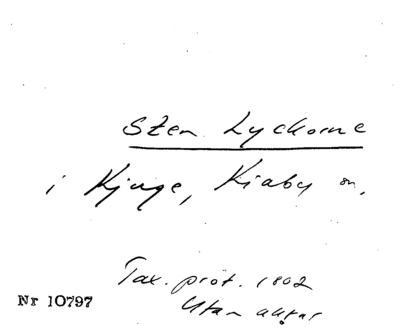 Sten Lyckorne
i Kjuge, Kiaby sn.
Tax. prot. 1802
Nr 10797
Utan avgår